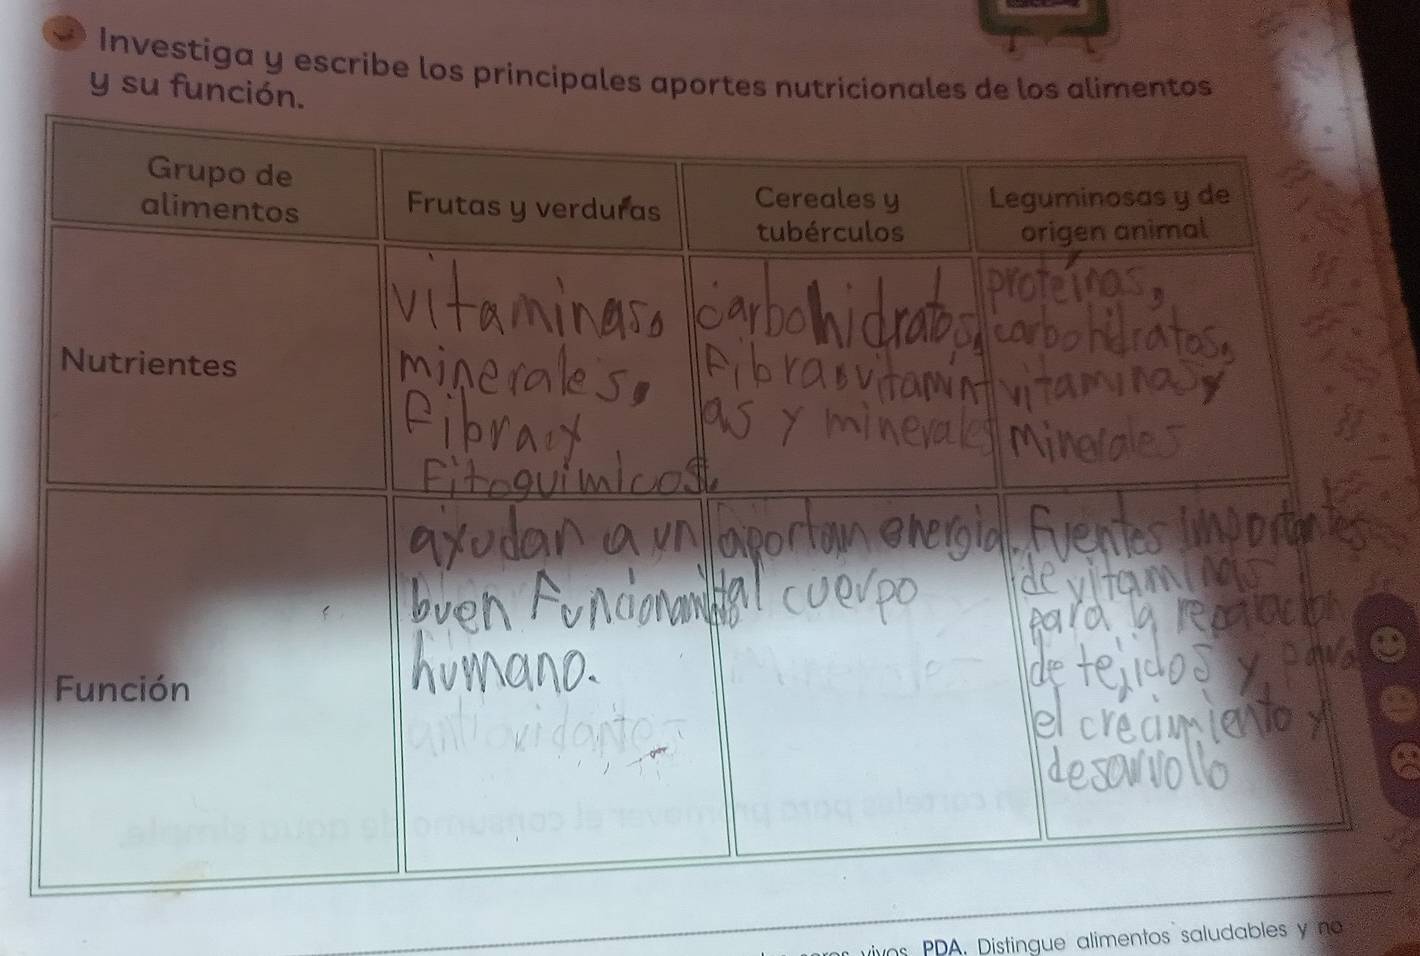 Investiga y escribe los principales aportes nutricionales de los alimentos
y su función.
Grupo de
alimentos
Frutas y verduras
Cereales y
tubérculos
Leguminosas y de
origen animal
Nutrientes
vitaminas,
minerales,
Fibra y
Fitoquimicos.
carbohidratos,
Fibra, vitamin
as y minerales
proteínas,
carbohidratos,
vitaminas y
Minerales
Función
ayudan a un
buen Funcionami
humano.
antioxidantes
aportan energia
al cuerpo
Fuentes importantes
de vitaminas
para la reparacion
de tejidos y para
el crecimiento y
desarrollo
vivos PDA. Distingue alimentos saludables y no